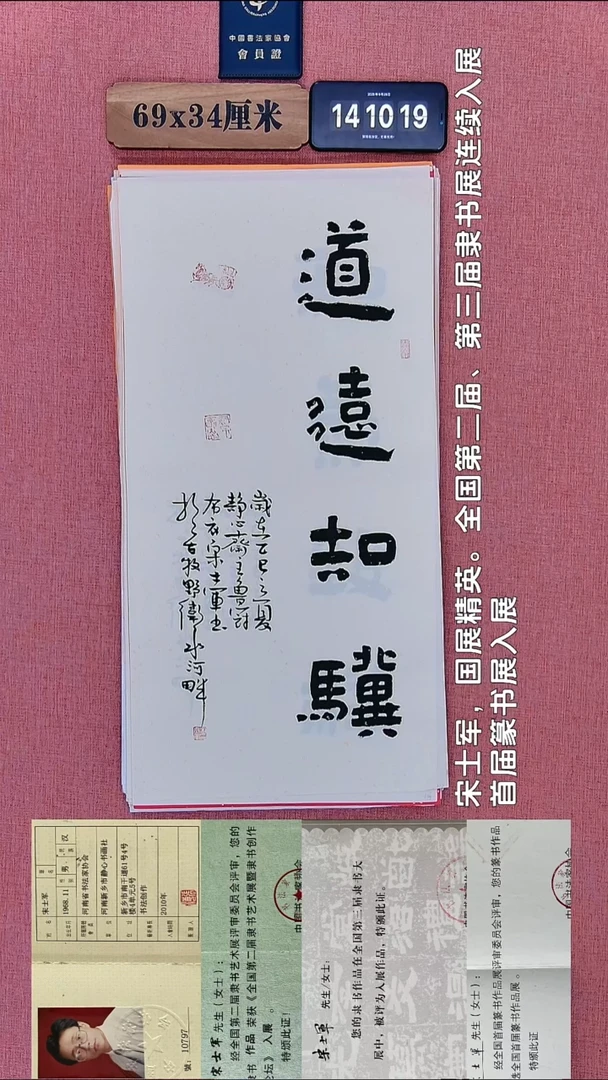 中國書法家協會
會員證
69x34厘米
14 10 19
道
造
詰
驥
歲在乙巳之夏
静心齋主魯尉
布衣宋士軍书
於古牧野衛水河畔
宋士军，国展精英。全国第二届、第三届隶书展连续入展
首届篆书展入展
宋士军
1968.11
男
汉
河南省书法家协会
河南新乡市静心书画社
新乡市南干道61号4号
楼4单元5号
书法创作
2010年
號：10797
宋士军 先生（女士）：
经全国第二届隶书艺术展评审委员会评审，您的
隶书 作品 荣获《全国第二届隶书艺术展暨隶书创作
论坛》 入展 。
特颁此证！
宋士军 先生/女士：
您的隶书作品在全国第三届隶书大
展中，被评为入展作品，特颁此证。
士军 先生（女士）：
经全国首届篆书作品展评审委员会评审，您的篆书作品
全国首届篆书作品展。
特颁此证